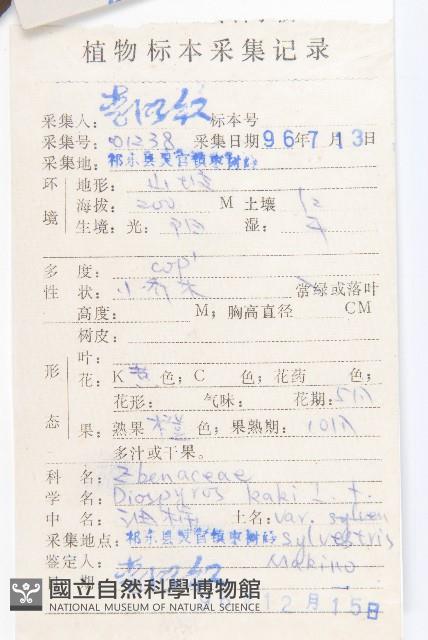 植物标本采集记录
采集人: 标本号
采集号: 01238 采集日期 96年7月13日
采集地: 祁东县
环境 地形: 山坡
海拔: 200 M 土壤 红
生境: 光: 阳 湿: 干
多度: cop'
性状: 小乔木 常绿或落叶
高度: M; 胸高直径 CM
树皮:
形态 叶:
花: K 色; C 色; 花药 色;
花形: 气味: 花期: 5月
果: 熟果 橙 色; 果熟期: 10月
多汁或干果。
科名: Ebenaceae
学名: Diospyros kaki L.f.
中名: 油柿 土名: var. sylven
采集地点: 祁东县 sylvestris
鉴定人: Makino
日期
國立自然科學博物館
NATIONAL MUSEUM OF NATURAL SCIENCE
12月15日